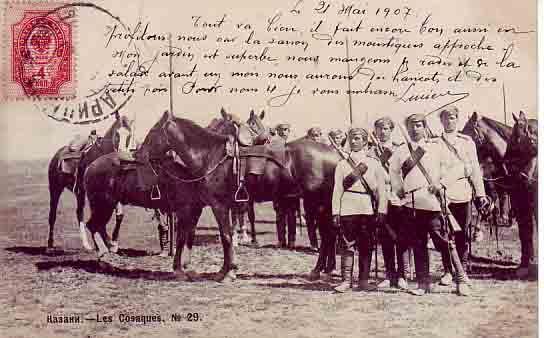 Le 21 Mai 1907.
Tout va bien, il fait encore bon aussi en
profitons nous car la saison des moustiques approche
Mon jardin est superbe nous mangeons radis et de la
salade avant un mois nous aurons des haricots et des
petits pois
je vous embrasse
Lucien
4
Казаки.—Les Cosaques. № 29.